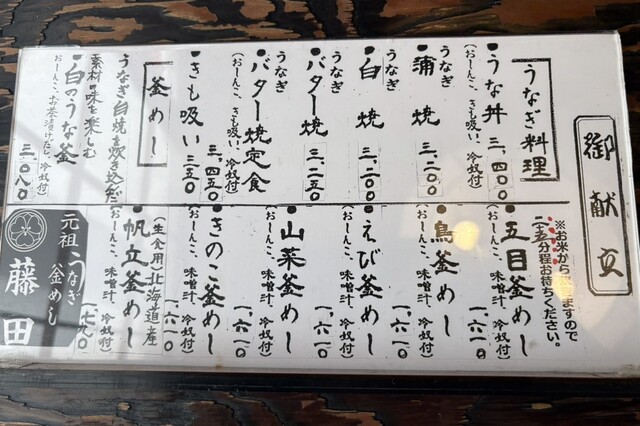 御献立
うなぎ料理
●うな丼 三、四〇〇
(おしんこ、きも吸い、冷奴付)
うなぎ
●蒲焼 三、二〇〇
うなぎ
●白焼 三、二〇〇
うなぎ
●バター焼 三、二五〇
うなぎ
●バター焼定食 三、四五〇
(おしんこ、きも吸い、冷奴付)
●きも吸い 三五〇
釜めし
うなぎ白焼を炊き込んだ
素材の味を楽しむ
●白のうな釜 三、〇八〇
(おしんこ、お茶漬けだし、冷奴付)
※お米から
ますので
分程お待ちください。
●五目釜めし 一、六一〇
(おしんこ、味噌汁、冷奴付)
●鳥釜めし 一、六一〇
(おしんこ、味噌汁、冷奴付)
●えび釜めし 一、六一〇
(おしんこ、味噌汁、冷奴付)
●山菜釜めし 一、六一〇
(おしんこ、味噌汁、冷奴付)
●きのこ釜めし 一、六一〇
(おしんこ、味噌汁、冷奴付)
(生食用)北海道産
●帆立釜めし 一、七九〇
(おしんこ、味噌汁、冷奴付)
元祖
うなぎ
釜めし
藤田